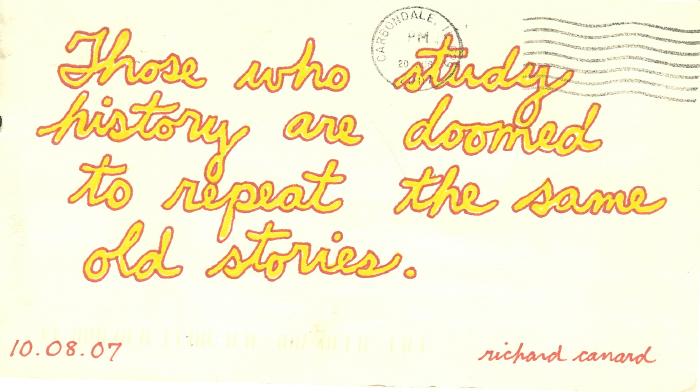 CARBONDALE, IL
PM
20
Those who study
history are doomed
to repeat the same
old stories.
10.08.07
richard canard